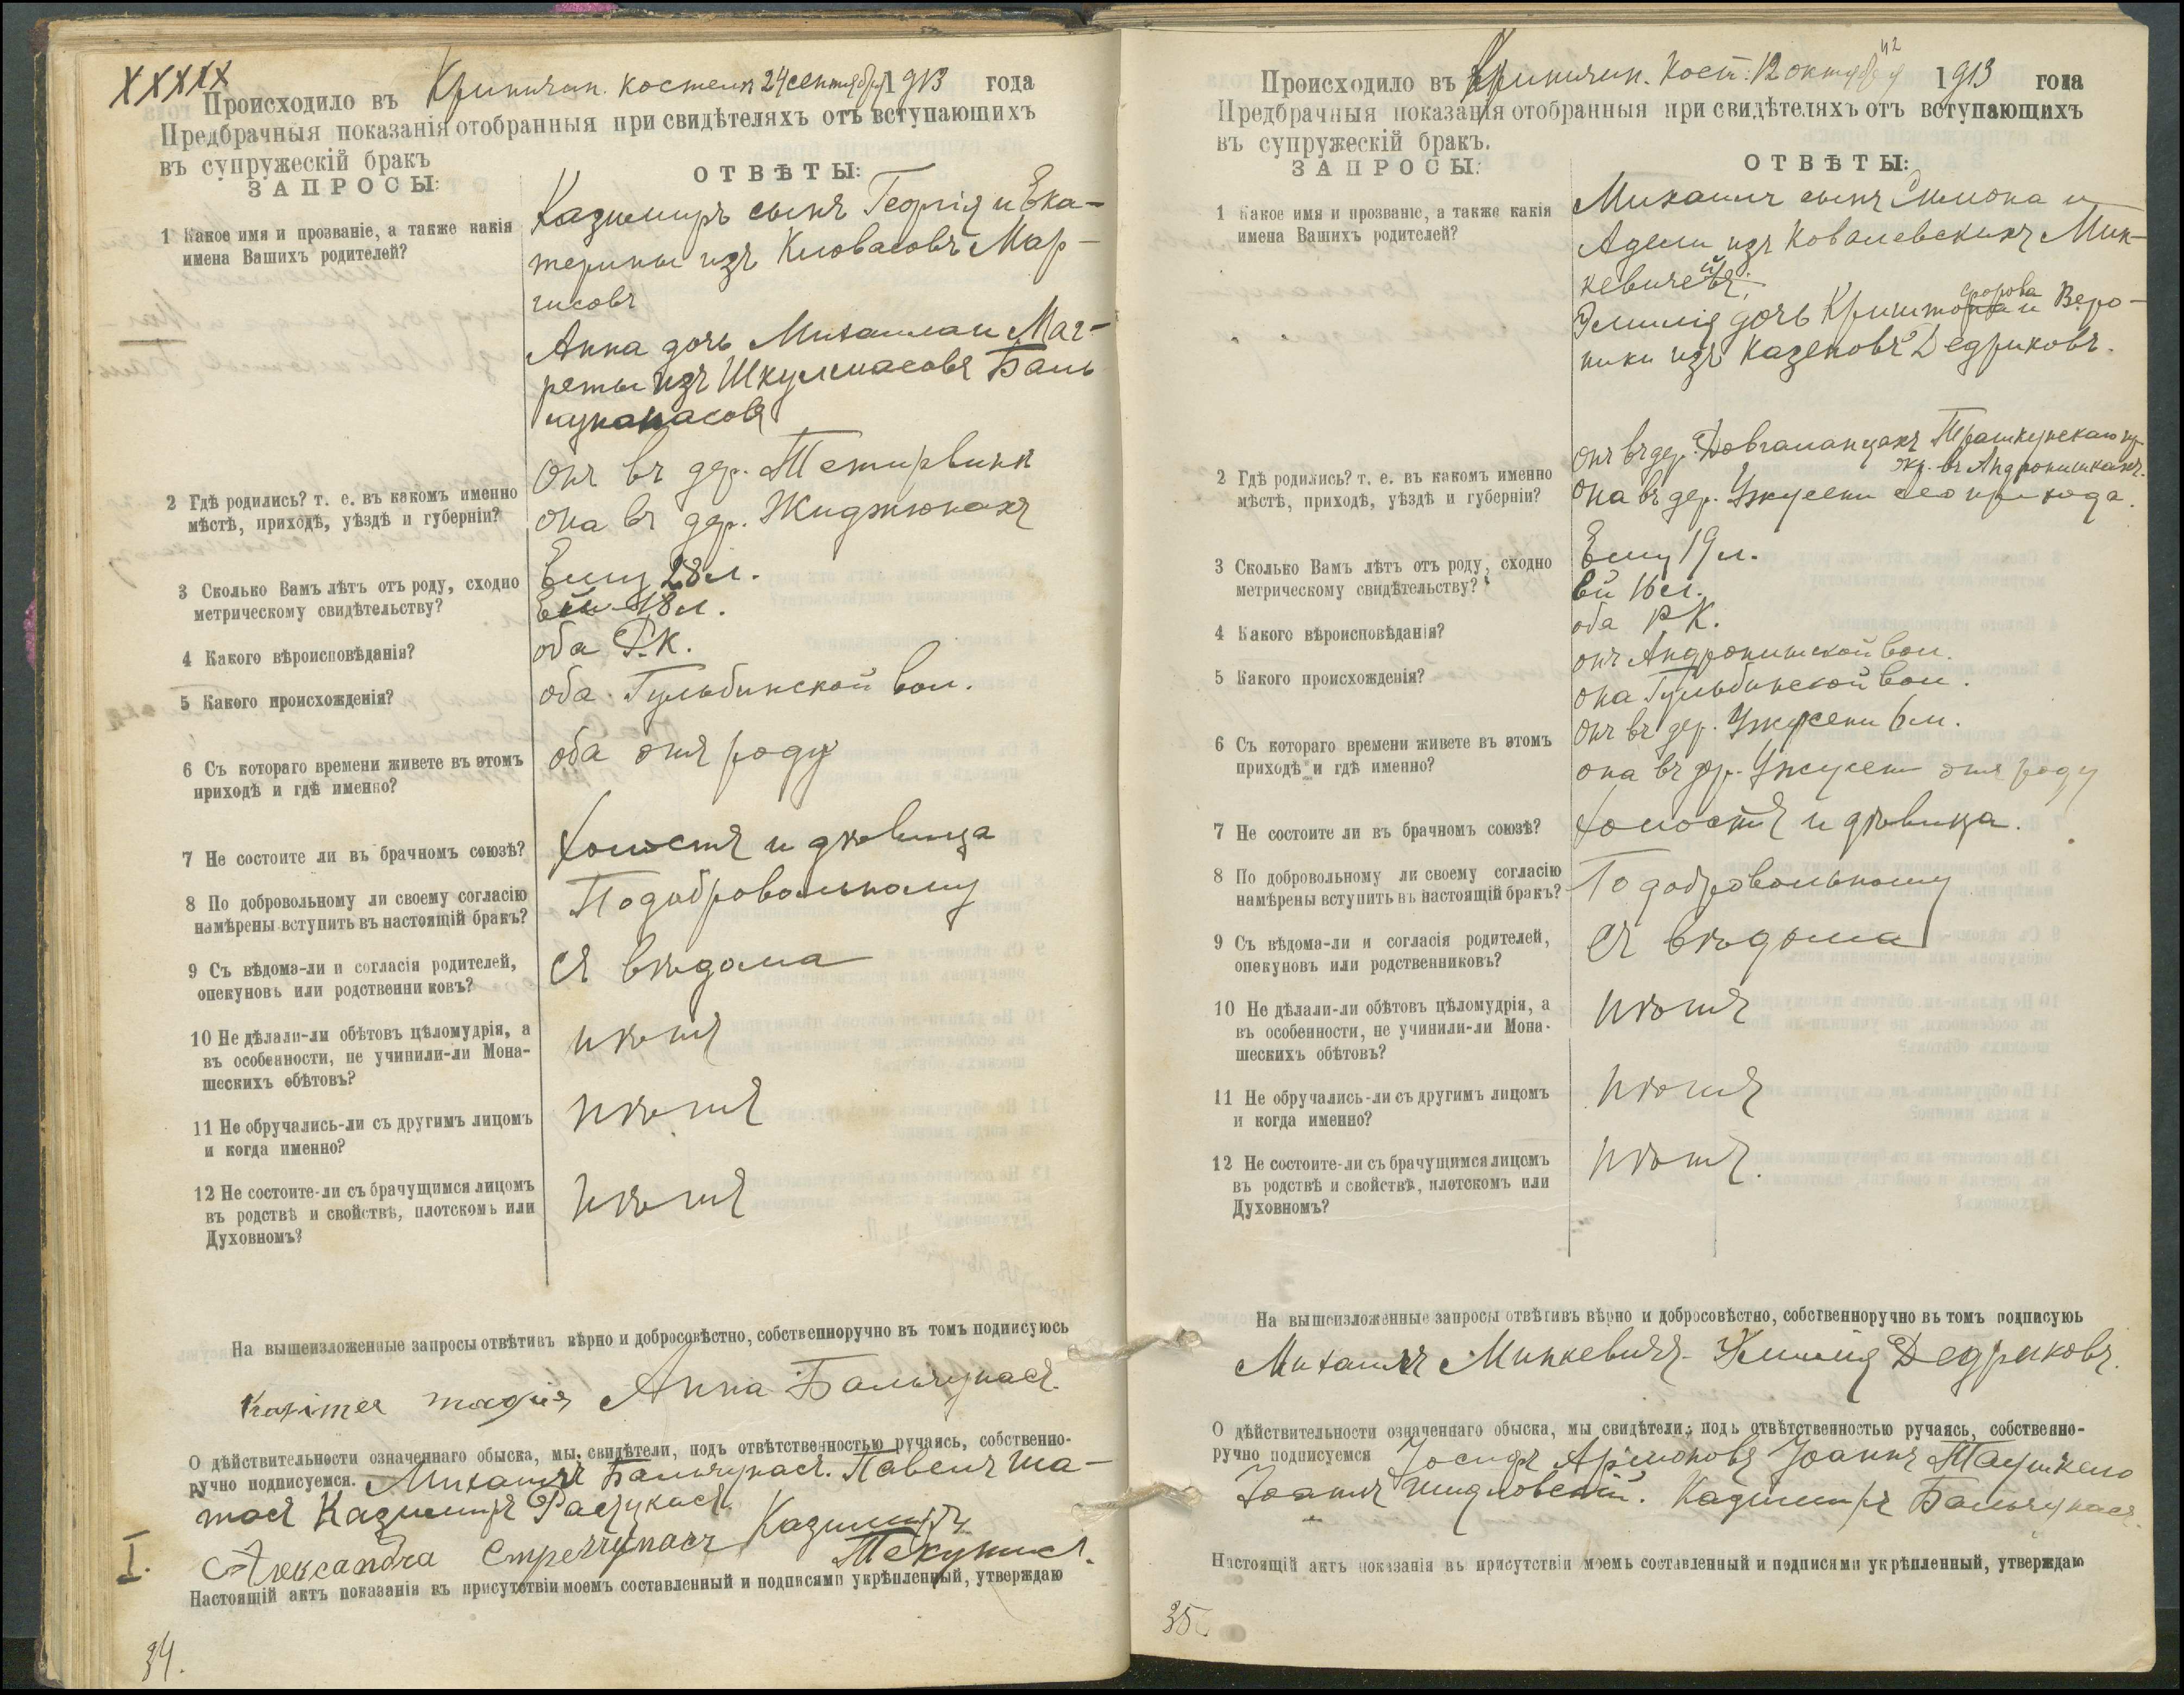 XXXIX
Происходило въ Крипичан. костелѣ 24 сентября 1913 года
Предбрачныя показанія отобранныя при свидѣтеляхъ отъ вступающихъ
въ супружескій бракъ
ЗАПРОСЫ:
ОТВѢТЫ:
1 Какое имя и прозваніе, а также какія
имена Вашихъ родителей?
Казимиръ сынъ Георгія и Ека-
терины изъ Кловасовъ Мар-
гисовъ
Анна дочь Михаила и Маг-
реты изъ Шкулмасовъ Баль
чунасовъ
2 Гдѣ родились? т. е. въ какомъ именно
мѣстѣ, приходѣ, уѣздѣ и губерніи?
онъ въ дер. Тетирвини
она въ дер. Жиджюнахъ
3 Сколько Вамъ лѣтъ отъ роду, сходно
метрическому свидѣтельству?
Ему 28 л.
Ей 18 л.
4 Какого вѣроисповѣданія?
оба Р.К.
5 Какого происхожденія?
оба Гульбинской вол.
6 Съ котораго времени живете въ этомъ
приходѣ и гдѣ именно?
оба отъ роду
7 Не состоите ли въ брачномъ союзѣ?
холостъ и дѣвица
8 По добровольному ли своему согласію
намѣрены вступить въ настоящій бракъ?
По добровольному
9 Съ вѣдома-ли и согласія родителей,
опекуновъ или родственниковъ?
съ вѣдома
10 Не дѣлали-ли обѣтовъ цѣломудрія, а
въ особенности, не учинили-ли Мона-
шескихъ обѣтовъ?
нѣтъ
11 Не обручались-ли съ другимъ лицомъ
и когда именно?
нѣтъ
12 Не состоите-ли съ брачущимся лицомъ
въ родствѣ и свойствѣ, плотскомъ или
Духовномъ?
нѣтъ
На вышеизложенные запросы отвѣтивъ вѣрно и добросовѣстно, собственноручно въ томъ подписуюсь
Анна Бальчунасъ.
О дѣйствительности означеннаго обыска, мы, свидѣтели, подъ отвѣтственностью ручаясь, собственно-
ручно подписуемся. Михаилъ Бальчунасъ. Павелъ Ша-
тасъ Казимиръ
Александра Стречунасъ Казимиръ
Текунисъ.
I.
Настоящій актъ показанія въ присутствіи моемъ составленный и подписями укрѣпленный, утверждаю
34.
Происходило въ Крипичан. кост: 12 октября 1913 года
Предбрачныя показанія отобранныя при свидѣтеляхъ отъ вступающихъ
въ супружескій бракъ.
ЗАПРОСЫ:
ОТВѢТЫ:
1 Какое имя и прозваніе, а также какія
имена Вашихъ родителей?
Михаилъ сынъ Симона и
Адели изъ Ковалевскихъ Мин-
кевичей;
Эмилія дочь Криштопа и Веро-
ники изъ Казеновъ Дедриковъ.
2 Гдѣ родились? т. е. въ какомъ именно
мѣстѣ, приходѣ, уѣздѣ и губерніи?
онъ въ дер. Довгаланцахъ Трашкунскаго пр.
жр. въ Андронишкахъ.
она въ дер. Ужусени сего прихода.
3 Сколько Вамъ лѣтъ отъ роду, сходно
метрическому свидѣтельству?
Ему 19 л.
Ей 16 л.
4 Какого вѣроисповѣданія?
оба Р.К.
5 Какого происхожденія?
онъ Андронишской вол.
она Гульбинской вол.
6 Съ котораго времени живете въ этомъ
приходѣ и гдѣ именно?
онъ въ дер. Ужусени 6 м.
она въ дер. Ужусени отъ роду
7 Не состоите ли въ брачномъ союзѣ?
холостъ и дѣвица.
8 По добровольному ли своему согласію
намѣрены вступить въ настоящій бракъ?
По добровольному
9 Съ вѣдома-ли и согласія родителей,
опекуновъ или родственниковъ?
съ вѣдома
10 Не дѣлали-ли обѣтовъ цѣломудрія, а
въ особенности, не учинили-ли Мона-
шескихъ обѣтовъ?
нѣтъ
11 Не обручались-ли съ другимъ лицомъ
и когда именно?
нѣтъ
12 Не состоите-ли съ брачущимся лицомъ
въ родствѣ и свойствѣ, плотскомъ или
Духовномъ?
нѣтъ.
На вышеизложенные запросы отвѣтивъ вѣрно и добросовѣстно, собственноручно въ томъ подписуюь
Михаилъ Минкевичъ. Эмилія Дедриковъ.
О дѣйствительности означеннаго обыска, мы свидѣтели; подъ отвѣтственностью ручаясь, собственно-
ручно подписуемся Іосифъ Арціоновъ Іоаннъ Таушкело
Іоаннъ Шидловскій. Казимиръ Бальчунасъ.
Настоящій актъ показанія въ присутствіи моемъ составленный и подписями укрѣпленный, утверждаю
35